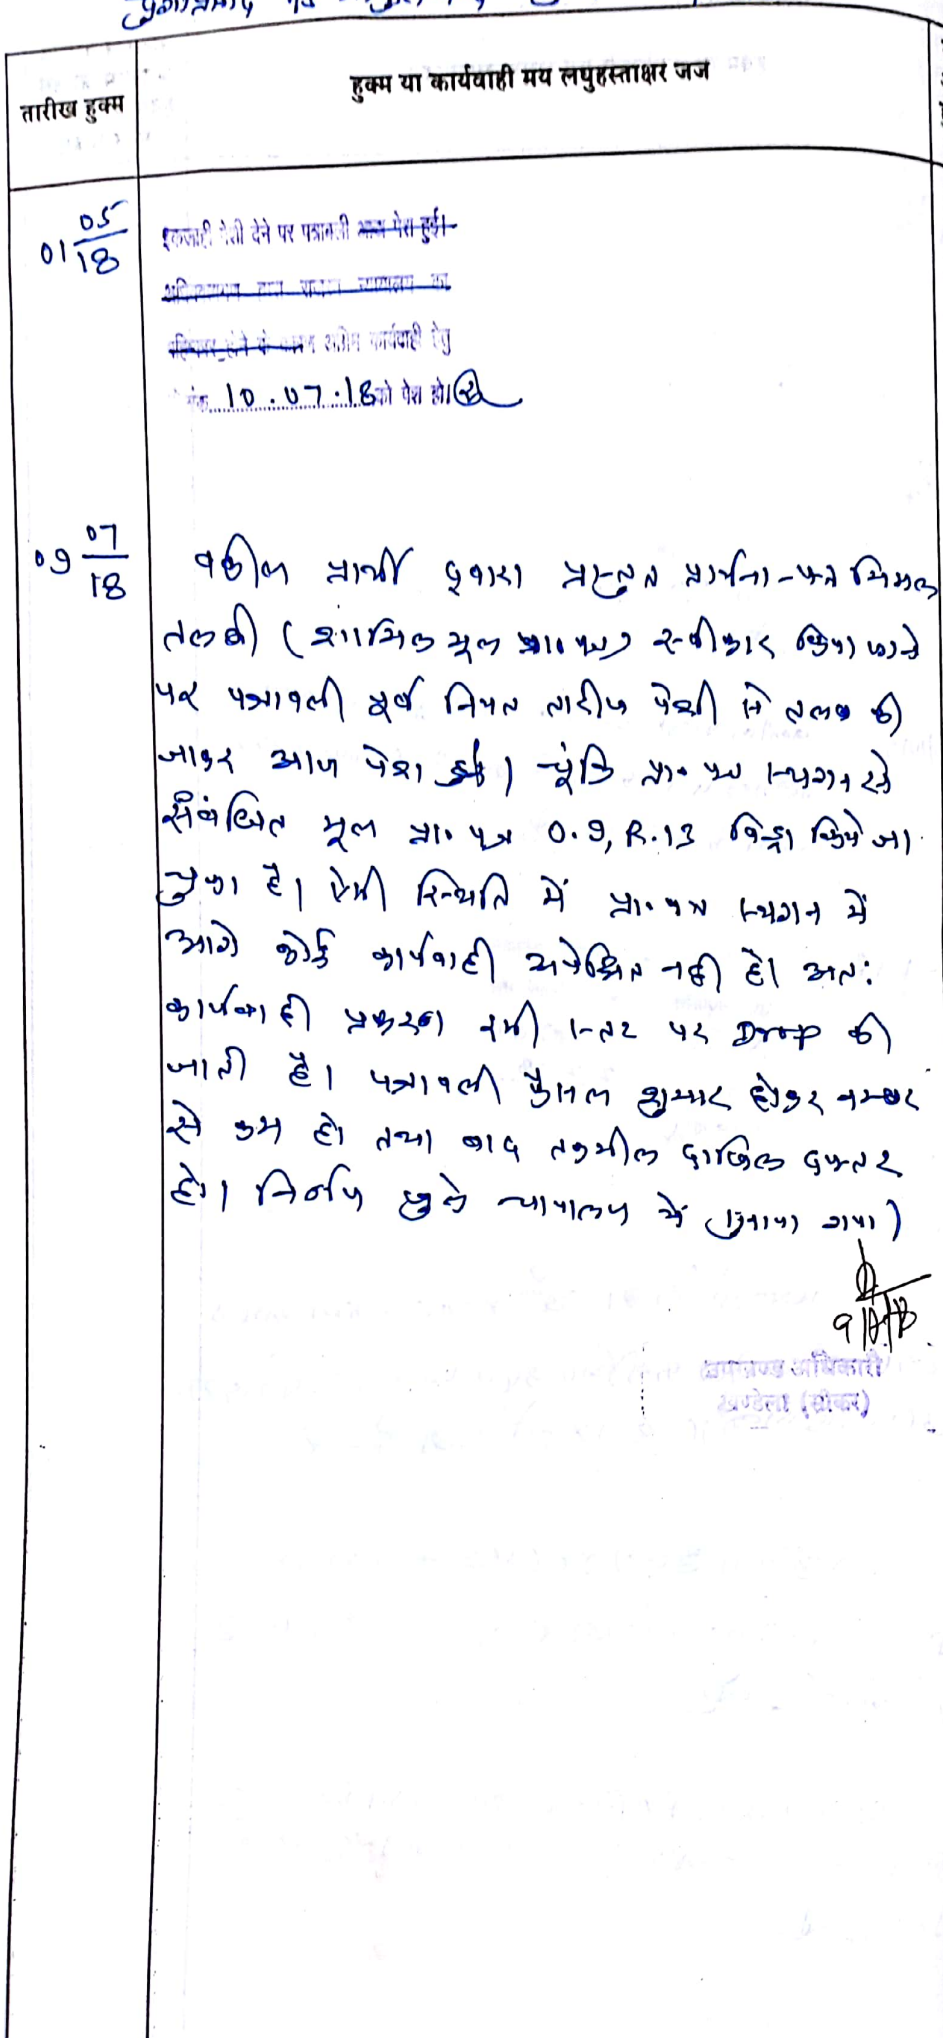 तारीख हुक्म
हुक्म या कार्यवाही मय लघुहस्ताक्षर जज
01 05/18
देने पर पत्रावली आज पेश हुई।
कार्यवाही हेतु
10.07.18 को पेश हो।
09 07/18
वकील प्रार्थी द्वारा प्रस्तुत प्रार्थना-पत्र मिसल
तलबी (शामिल मूल प्रा० पत्र) स्वीकार किया जाने
पर पत्रावली पूर्व नियत तारीख पेशी से तलब की
जाकर आज पेश हुई। चूंकि प्रा० पत्र स्थगन से
संबंधित मूल प्रा० पत्र O.9, R.13 विड्रा किये जा
चुका है। ऐसी स्थिति में प्रा० पत्र स्थगन में
आगे कोई कार्यवाही अपेक्षित नही है। अतः
कार्यवाही प्रकरण इसी स्तर पर Drop की
जाती है। पत्रावली फैसल शुमार होकर नम्बर
से कम हो तथा बाद तकमील दाखिल दफ्तर
हो। निर्णय खुले न्यायालय में सुनाया गया।
उपखण्ड अधिकारी
खण्डेला (सीकर)